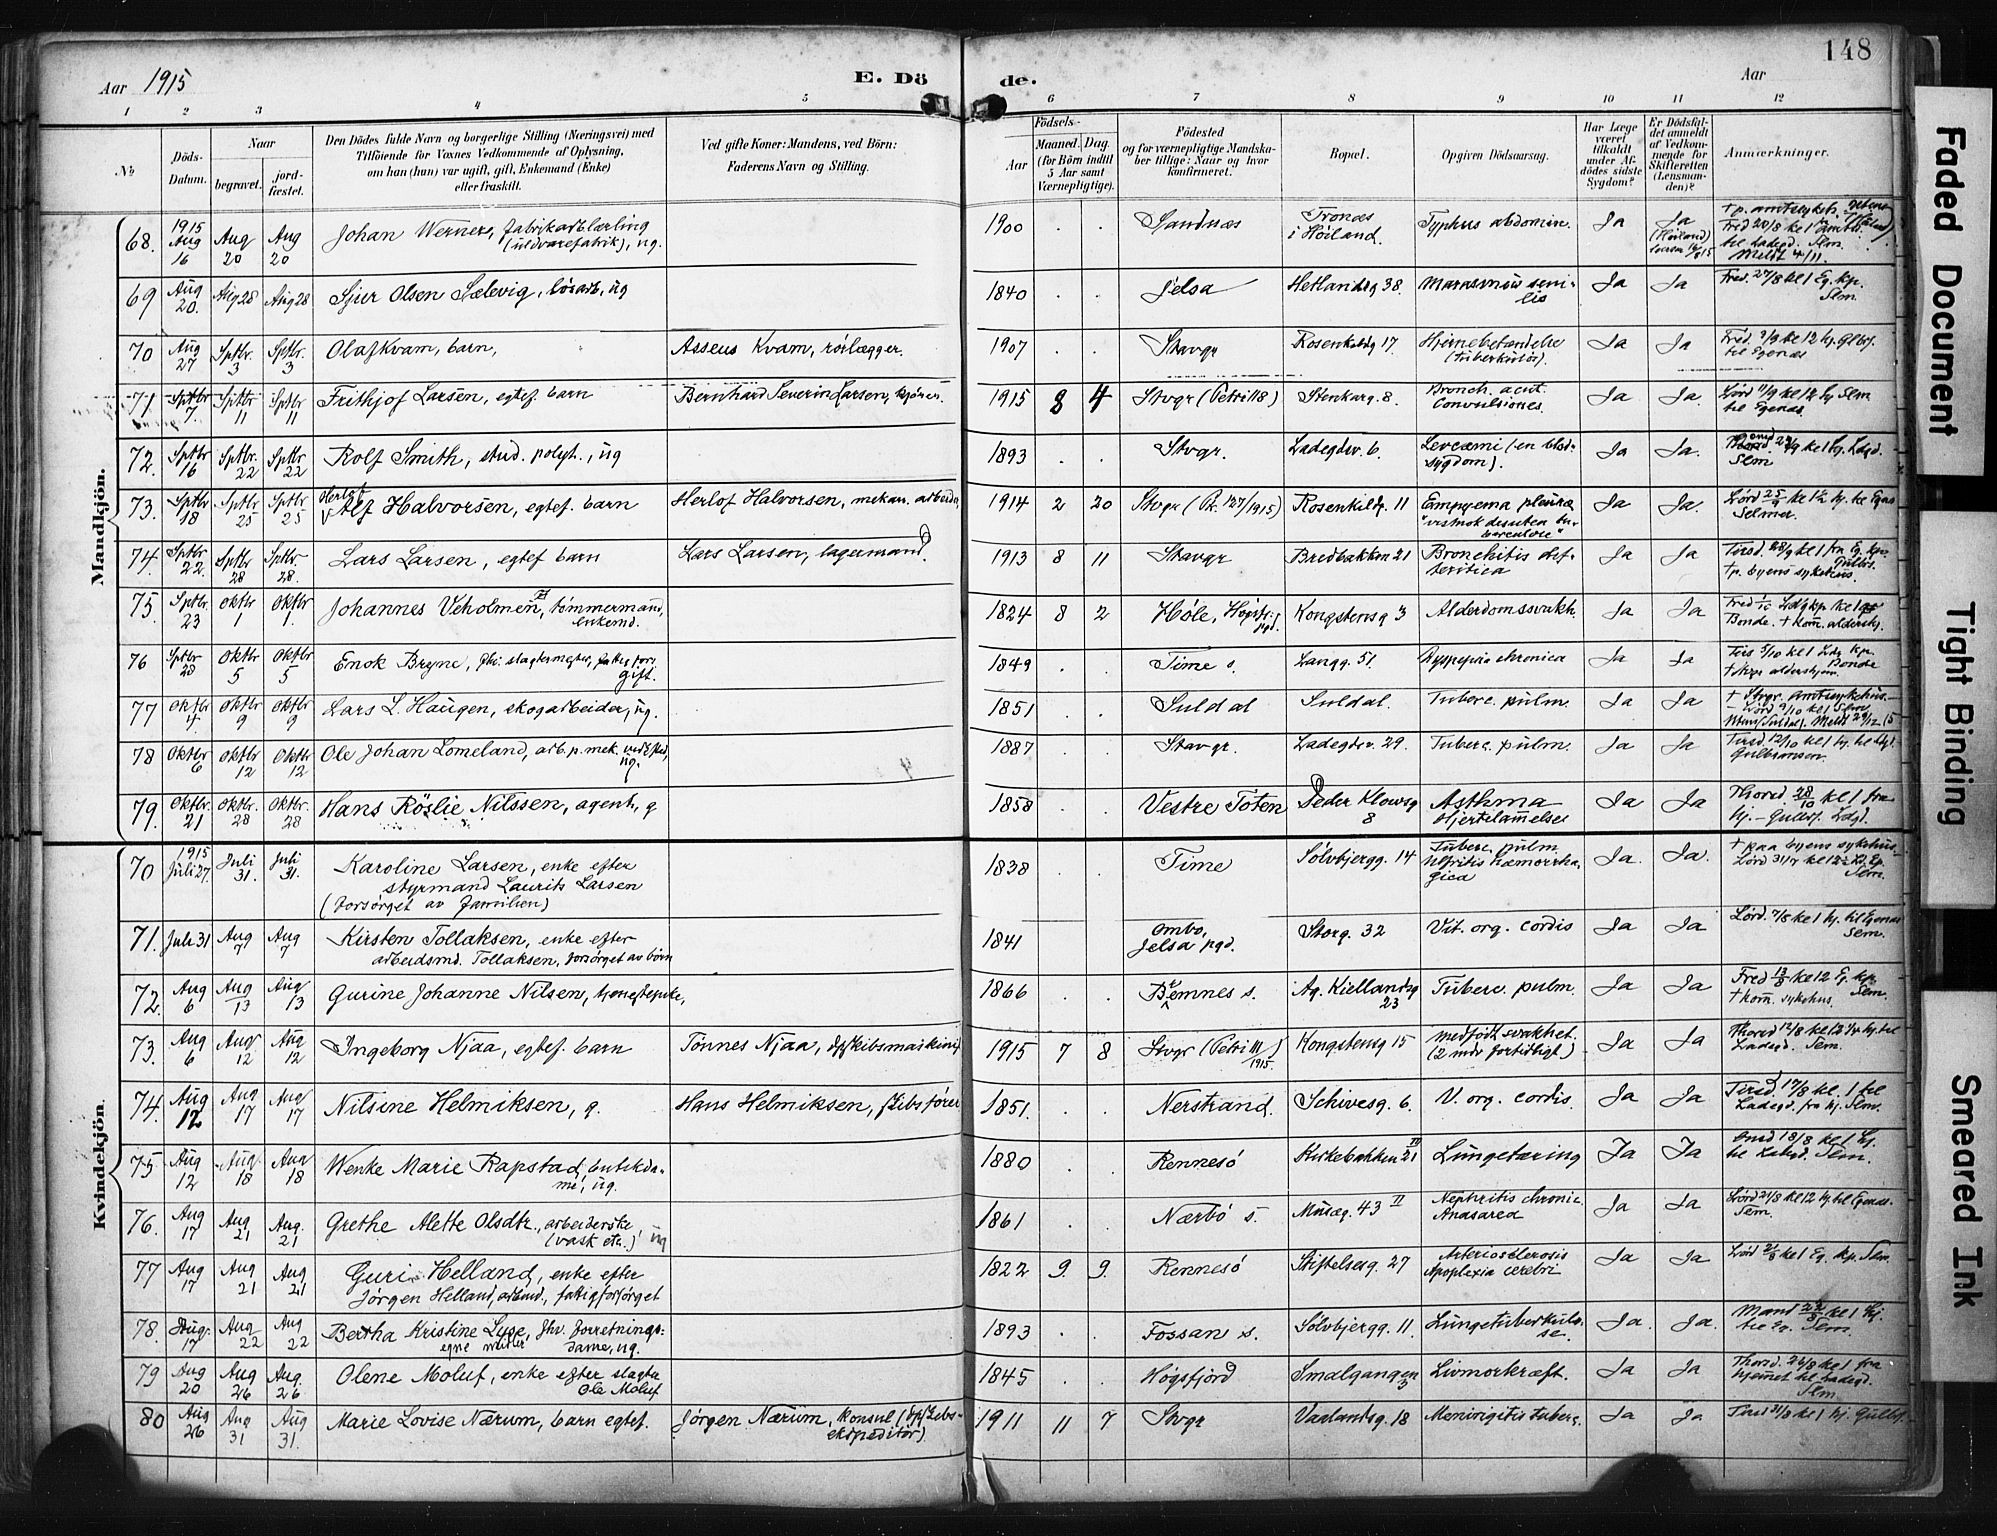 148
Aar 1915
E. Dö
de.
Aar
1 2 3 4 5 6 7 8 9 10 11 12
№
Döds-Datum.
Naar
begravet.
jord-fæstet.
Den Dödes fulde Navn og borgerlige Stilling (Næringsvei) med
Tilföiende for Voxnes Vedkommende af Oplysning,
om han (hun) var ugift, gift, Enkemand (Enke)
eller fraskilt.
Ved gifte Koner: Mandens, ved Börn:
Faderens Navn og Stilling.
Födsels-
Aar
Maaned. Dag.
(for Börn indtil
5 Aar samt
Værnepligtige).
Födested
og for værnepligtige Mandska-
ber tillige: Naar og hvor
konfirmeret.
Bopæl.
Opgiven Dödsaarsag.
Har Læge
været
tilkaldt
under Af-
dödes sidste
Sygdom?
Er Dödsfal-
det anmeldt
af Vedkom-
mende for
Skifteretten
(Lensman-
den)?
Anmærkninger.
Mandkjön.
68. 1915 Aug 16 Aug 20 Aug 20 Johan Werner, fabrikarb.lærling (uldvarefabrik), ug. 1900 . . Sandnæs Tronæs i Höiland. Typhus abdomin. Ja Ja (Höiland)
69 Aug 20. Aug 28 Aug 28 Sjur Olsen Sælevig, lösarb, ug 1840 . . Jelsa Hetlandsg 38. Marasmus senilis Ja Ja Fred. 27/8 kl 1 Eg. kp. Slm.
70 Aug 27 Sptbr. 3 Sptbr. 3 Olaf Kvam, barn, Asseus Kvam, rörlægger. 1907 . . Stavgr Rosenkildg 17. Hjernebetændelse (tuberkulös). Ja Ja Fred. 3/9 kl 12 hj. Glbr. til Egenæs
71. Sptbr 7 Sptbr 11 Sptbr 11 Frithjof Larsen, egtef barn Bernhard Severin Larsen, 1915 8 4 Stvgr (Petri 118) Stenkarg. 8. Bronch. acut. Convulsiones. Ja Ja Lörd 11/9 kl 12 hj Slm til Egenæs.
72. Sptbr 16 Sptbr. 22 Sptbr. 22 Rolf Smith, stud. polyt., ug 1893 . . Stvgr. Ladegdsv. 6. Levcæmi (en blodsygdom). Ja Ja. Slm
73. Sptbr 18 Sptbr 25 Sptbr. 25 Herlof Alf Halvorsen, egtef. barn Herlof Halvorsen, mekan. arbeider 1914 2 20 Stvgr (P. 127/1915) Rosenkildg. 11 Empyema pleuræ Ja Ja Lörd 25/9 Selmer.
74. Sptbr. 22. Sptbr 28 Sptbr. 28. Lars Larsen, egtef barn Lars Larsen, lagermand 1913 8 11 Stavgr Bredbakken 21 Bronchitis difteritica Ja Ja Tirsd. 28/9 kl 1 fra Eg. kp. +p. byens sykehus.
75. Sptbr. 23 Oktbr 1 Oktbr 1. Johannes Veholmen, tømmermand, enkemd. 1824 8 2 Høle, Høgsfj. pgd. Kongstensg 3 Alderdomssvakh. Ja Ja Fred 1/10 Bonde. + kom. aldershj.
76 Sptbr 28 Oktbr 5 Oktbr 5 Enok Bryne, fhv. slagtermester, fattigfors. gift. 1849 . . Time s. Langg. 51. Dyspepsia chronica Ja Ja Tirs 5/10 kl 1 Ldg kp. Bonde
77 Oktbr 4 Oktbr 9 Oktbr 9 Lars L. Haugen, skogarbeider, ug. 1851 . . Suldal Suldal. Tuberc. pulm. Ja Ja + Stvgr. amtssykehus.
78 Oktbr 6 Oktbr 12 Oktbr. 12 Ole Johan Lomeland, arb. p. mek. verksted, ug. 1887 . . Stavgr. Ladegdsv. 29. Tuberc. pulm. Ja Ja Tirsd. 12/10 kl 1 hj. til Ldgd. Gulbransen.
79. Oktbr. 21 Oktbr. 28 Oktbr. 28 Hans Röslie Nilssen, agent, g 1858 . . Vestre Toten Peder Klowsg 8 Asthma Hjertelammelse Ja Ja Thorsd. 28/10 kl 1 fra hj. – Gulbr. Ldgd.
Kvindekjön.
70 1915 Juli 27. Juli 31. Juli 31. Karoline Larsen, enke efter styrmand Laurits Larsen (forsörget av familien) 1838 . . Time Sölvbjergg. 14 Tuberc. pulm Nefritis hæmorrhagica Ja. Ja. + paa byens sykehus.
71. Juli 31 Aug 7 Aug 7 Kirsten Tollaksen, enke efter arbeidsmd. Tollaksen, forsörget av börn 1841 . . Ombo, Jelsa pgd. Storg. 32 Vit. org. cordis Ja Ja Lörd. 7/8 kl 1 hj. til Egenæs Sem.
72. Aug 6 Aug 13 Aug 13 Gurine Johanne Nilsen, tjenestepike, 1866 . . Bremnes s. Ag. Kiellandsg 23 Tuberc. pulm. Ja Ja Fred 13/8 kl 12 Eg. kp. Slm. + kom. sykehus.
73. Aug 6 Aug 12 Aug 12 Ingeborg Njaa, egtef. barn Tönnes Njaa, dpskibsmaskinist 1915 7 8 Stvgr (Petri 111/1915) Kongstensg 15 medfödt svakhet. (2 mdr fortidligt) Ja Ja Thorsd 12/8 Ladegd. Sem.
74. Aug 12 Aug 17 Aug 17 Nilsine Helmiksen, g. Hans Helmiksen, skibsförer 1851. . . Nerstrand. Schivesg. 6. V. org. cordis. Ja Ja Tirsd 17/8 kl. 1 til Ladegd. fra hj. Slm.
75. Aug 12 Aug. 18 Aug 18 Wenke Marie Rapstad, butikdame, ug. 1880 . . Rennesö Kirkebakken 21 Lungetæring Ja Ja Onsd 18/8 kl 1 hj. til Ladegd. Sem.
76. Aug 17 Aug. 21 Aug. 21 Grethe Alette Olsdtr., arbeiderske (vask etc.) ug 1861 . . Nærbö s. Musæg. 43 II Nephritis chronic. Anasarca Ja Ja Lörd 21/8 kl 12 hj til Egenæs. Sem.
77 Aug 17 Aug 21 Aug 21 Guri Helland, enke efter Jörgen Helland, arbmd., fattigforsörget 1822 9 9. Rennesö Stiftelsesg. 27 Arteriosclerosis Apoplexia cerebri Ja Ja Lörd 21/8 kl 1 Eg. kp. Slm.
78. Aug. 17 Aug 22 Aug 22 Bertha Kristine Lyse, fhv. forretningsdame, ug. egne midler 1893 . . Fossan s. Sölvbjergg. 11. Lungetuberkulose. Ja. Ja. til Eg. Sem.
79 Aug 20 Aug 26 Aug. 26 Olene Moluf, enke efter slagter Ole Moluf 1845 . . Högsfjord Smalgangen 3 Livmorkræft. Ja Ja Thorsd. 26/8 kl 1 fra hjemmet til Ladegd. Slm.
80 Aug 26 Aug 31 Aug 31. Marie Lovise Nærum, barn egtef. Jörgen Nærum, konsul (dpskibsekspeditör) 1911 11 7 Stvgr Vaalandsg. 18 Meningitis tuberc. Ja Ja Tirs 31/8 kl 1 hj. Gulbr.
Faded Document
Tight Binding
Smeared Ink